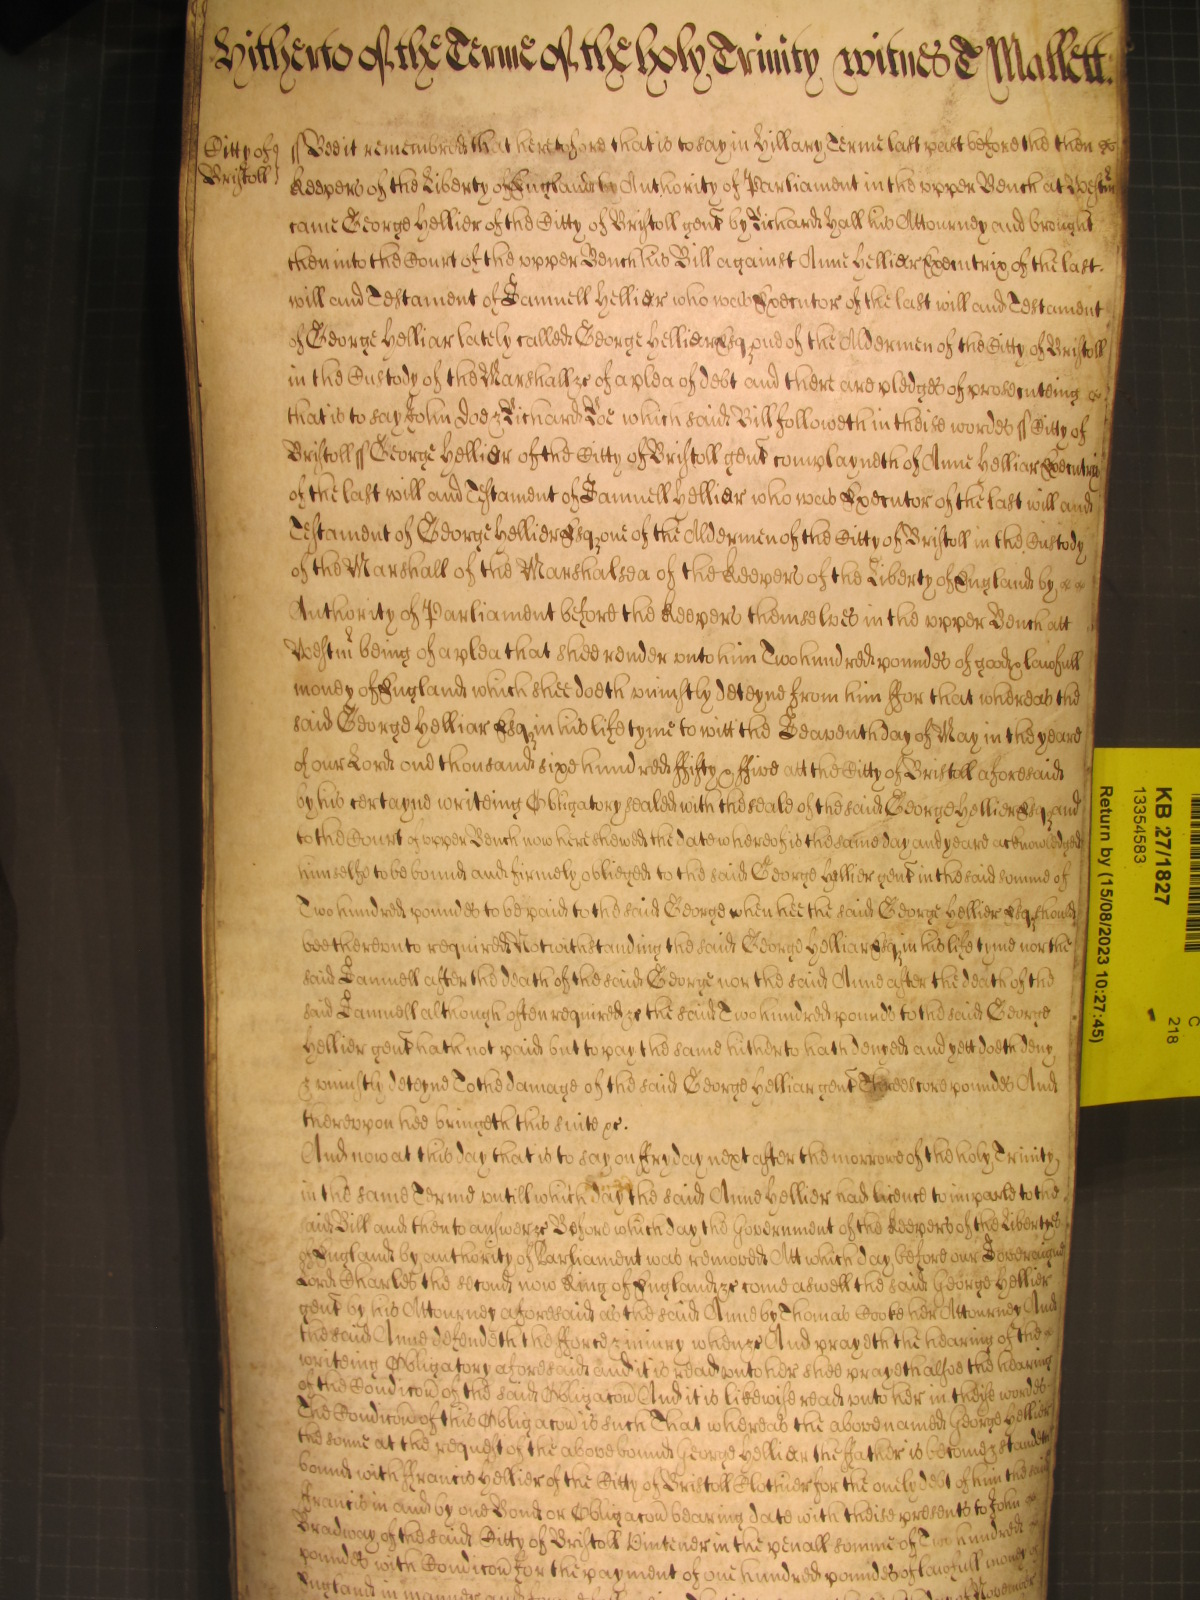 Hitherto of the Terme of the holy Trinity witnes T Mallett.
Citty of
Bristoll
ss Bee it remembred that heretofore that is to say in Hillary Terme last past before the then
Keepers of the Liberty of England by Authority of Parliament in the upper Bench at Westm
came George Hellier of the Citty of Bristoll gent by Richard Hall his Attourney and brought
then into the Court of the upper Bench his Bill against Anne Hellier Executrix of the last
will and Testament of Samuell Hellier who was Executor of the last will and Testament
of George Helliar lately called George Hellier Esq one of the Aldermen of the Citty of Bristoll
in the Custody of the Marshall &c of a plea of debt and there are pledges of prosecuteing
that is to say John Doe & Richard Roe which said Bill followeth in theise wordes ss Citty of
Bristoll ss George Hellier of the Citty of Bristoll gent complayneth of Anne Helliar Executrix
of the last will and Testament of Samuell Hellier who was Executor of the last will and
Testament of George Hellier Esq one of the Aldermen of the Citty of Bristoll in the Custody
of the Marshall of the Marshalsea of the Keepers of the Liberty of England by
Authority of Parliament before the Keepers themselves in the upper Bench att
Westm being of a plea that shee render unto him Two hundred poundes of good & lawfull
money of England which shee doeth uniustly deteyne from him ffor that whereas the
said George Helliar Esq in his life tyme to witt the Seaventh day of May in the yeare
of our Lord one thousand sixe hundred ffifty & ffive att the Citty of Bristoll aforesaid
by his certayne writeing Obligatory sealed with the seale of the said George Hellier Esq and
to the Court of upper Bench now here shewed the date whereof is the same day and yeare acknowledged
himselfe to be bound and firmely obliged to the said George Hellier gent in the said somme of
Two hundred poundes to be paid to the said George when hee the said George Hellier Esq should
bee thereunto required Notwithstanding the said George Helliar Esq in his life tyme nor the
said Samuell after the death of the said George nor the said Anne after the death of the
said Samuell although often required &c the said Two hundred pounds to the said George
Hellier gent hath not paid but to pay the same hitherto hath denyed and yett doeth deny
& uniustly deteyne To the damage of the said George Helliar gent Threescore poundes And
thereupon hee bringeth this suite &c.
And now at this day that is to say on ffryday next after the morrowe of the holy Trinity
in the same Terme untill which day the said Anne Hellier had licence to imparle to the
said Bill and then to answere &c Before which day the Government of the Keepers of the Libertyes
of England by authority of Parliament was removed Att which day before our Soveraigne
Lord Charles the second now King of England &c come aswell the said George Hellier
gent by his Attourney aforesaid as the said Anne by Thomas Cooke her Attourney And
the said Anne defendeth the fforce & iniury when &c And prayeth the hearing of the
writeing Obligatory aforesaid and it is read unto her shee prayeth alsoe the hearing
of the Condicon of the said Obligacon And it is likewise read unto her in theise wordes
The Condicon of this Obligacon is such That whereas the above named George Hellier
the sonne at the request of the above bound George Hellier the ffather is become & standeth
bound with ffrancis Hellier of the Citty of Bristoll Clothier for the onely debt of him the said
ffrancis in and by one Bond or Obligacon bearing date with theise presents to John
Bradway of the said Citty of Bristoll Vintener in the penall somme of Two hundred
poundes with Condicon for the payment of one hundred poundes of lawfull money of
England in manner and
KB 27/1827
13354583
Return by (15/08/2023 10:27:45)
C
218